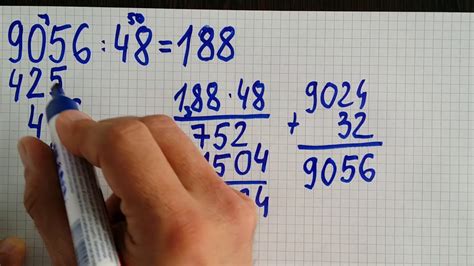 7 50
9056 : 48 = 188
425
4
188 · 48
752
1504
4
9024
+ 32
9056